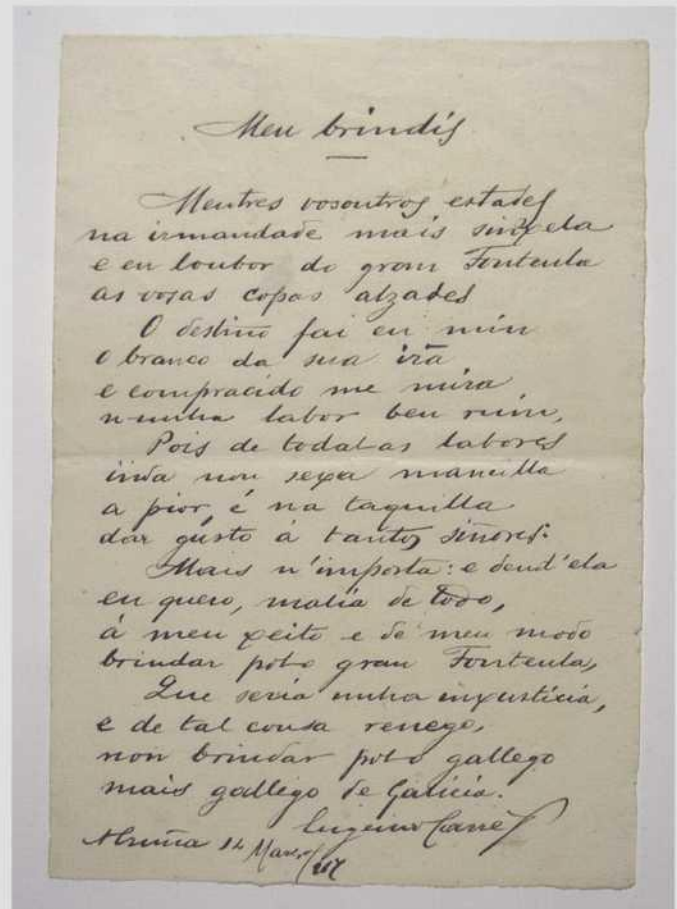 Meu brindis
Mentres vosoutros estades
na irmandade mais sinxela
e en loubor do gram Fontenla
as vosas copas alzades
O destino fai en min
o branco da sua ira
e compracido me mira
nunha labor ben ruin,
Pois de todal-as labores
inda non sexa mancilla
a pior, é na taquilla
dar gusto á tantos siñores.
Mais n'importa: e dend'ela
eu quero, malia de todo,
á meu xeito e de meu modo
brindar polo gran Fontenla,
Que sería unha inxusticia,
e de tal cousa renego,
non brindar polo gallego
mais gallego de Galicia.
Eugenio Carré
12 Marzo